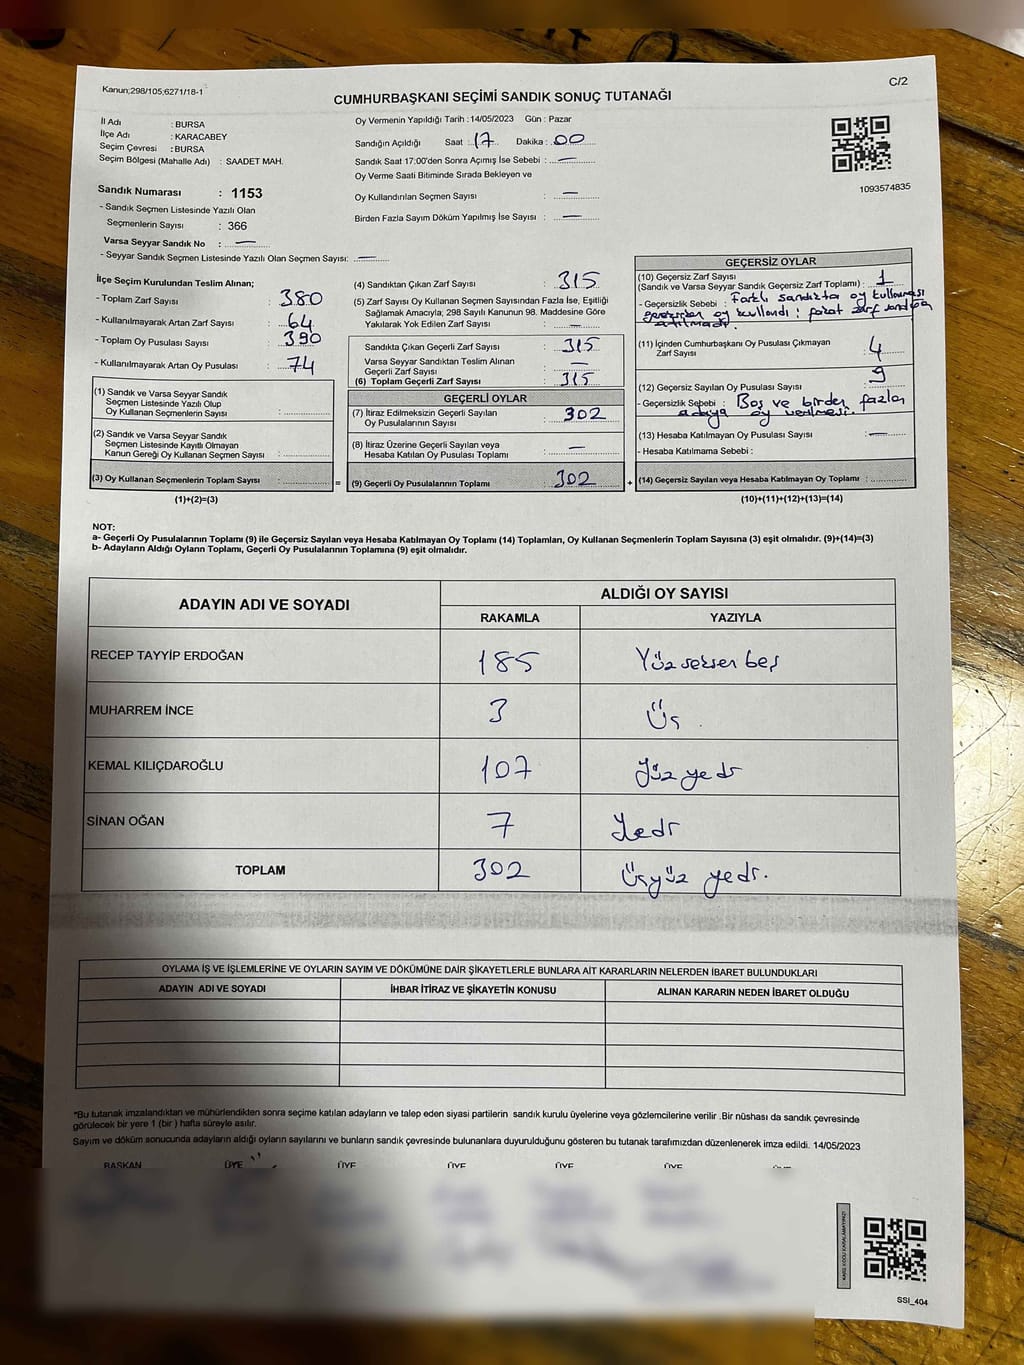 Kanun;298/105;6271/18-1
C/2
CUMHURBAŞKANI SEÇİMİ SANDIK SONUÇ TUTANAĞI
İl Adı : BURSA
İlçe Adı : KARACABEY
Seçim Çevresi : BURSA
Seçim Bölgesi (Mahalle Adı) : SAADET MAH.
Sandık Numarası : 1153
- Sandık Seçmen Listesinde Yazılı Olan
Seçmenlerin Sayısı : 366
Varsa Seyyar Sandık No : —
- Seyyar Sandık Seçmen Listesinde Yazılı Olan Seçmen Sayısı: —
Oy Vermenin Yapıldığı Tarih :14/05/2023 Gün : Pazar
Sandığın Açıldığı Saat : 17 Dakika : 00
Sandık Saat 17:00'den Sonra Açımış İse Sebebi : —
Oy Verme Saati Bitiminde Sırada Bekleyen ve
Oy Kullandırılan Seçmen Sayısı : —
Birden Fazla Sayım Döküm Yapılmış İse Sayısı : —
1093574835
İlçe Seçim Kurulundan Teslim Alınan;
- Toplam Zarf Sayısı : 380
- Kullanılmayarak Artan Zarf Sayısı : 64
- Toplam Oy Pusulası Sayısı : 390
- Kullanılmayarak Artan Oy Pusulası : 74
(1) Sandık ve Varsa Seyyar Sandık
Seçmen Listesinde Yazılı Olup
Oy Kullanan Seçmenlerin Sayısı :
(2) Sandık ve Varsa Seyyar Sandık
Seçmen Listesinde Kayıtlı Olmayan
Kanun Gereği Oy Kullanan Seçmen Sayısı :
(3) Oy Kullanan Seçmenlerin Toplam Sayısı :
(1)+(2)=(3)
(4) Sandıktan Çıkan Zarf Sayısı : 315
(5) Zarf Sayısı Oy Kullanan Seçmen Sayısından Fazla İse, Eşitliği
Sağlamak Amacıyla; 298 Sayılı Kanunun 98. Maddesine Göre
Yakılarak Yok Edilen Zarf Sayısı : —
Sandıkta Çıkan Geçerli Zarf Sayısı : 315
Varsa Seyyar Sandıktan Teslim Alınan
Geçerli Zarf Sayısı : —
(6) Toplam Geçerli Zarf Sayısı : 315
GEÇERLİ OYLAR
(7) İtiraz Edilmeksizin Geçerli Sayılan
Oy Pusulalarının Sayısı : 302
(8) İtiraz Üzerine Geçerli Sayılan veya
Hesaba Katılan Oy Pusulası Toplamı : —
(9) Geçerli Oy Pusulalarının Toplamı : 302
GEÇERSİZ OYLAR
(10) Geçersiz Zarf Sayısı
(Sandık ve Varsa Seyyar Sandık Geçersiz Zarf Toplamı) : 1
- Geçersizlik Sebebi : Farklı sandıkta oy kullanması
gerekirken oy kullandı : fakat zarf sandığa
atılmadı.
(11) İçinden Cumhurbaşkanı Oy Pusulası Çıkmayan
Zarf Sayısı : 4
(12) Geçersiz Sayılan Oy Pusulası Sayısı : 9
- Geçersizlik Sebebi : Boş ve birden fazla
adaya oy verilmesi.
(13) Hesaba Katılmayan Oy Pusulası Sayısı : —
- Hesaba Katılmama Sebebi :
(14) Geçersiz Sayılan veya Hesaba Katılmayan Oy Toplamı :
(10)+(11)+(12)+(13)=(14)
NOT:
a- Geçerli Oy Pusulalarının Toplamı (9) ile Geçersiz Sayılan veya Hesaba Katılmayan Oy Toplamı (14) Toplamları, Oy Kullanan Seçmenlerin Toplam Sayısına (3) eşit olmalıdır. (9)+(14)=(3)
b- Adayların Aldığı Oyların Toplamı, Geçerli Oy Pusulalarının Toplamına (9) eşit olmalıdır.
ADAYIN ADI VE SOYADI ALDIĞI OY SAYISI
RAKAMLA YAZIYLA
RECEP TAYYİP ERDOĞAN 185 Yüz seksen beş
MUHARREM İNCE 3 Üç
KEMAL KILIÇDAROĞLU 107 Yüz yedi
SİNAN OĞAN 7 Yedi
TOPLAM 302 Üçyüz yedi.
OYLAMA İŞ VE İŞLEMLERİNE VE OYLARIN SAYIM VE DÖKÜMÜNE DAİR ŞİKAYETLERLE BUNLARA AİT KARARLARIN NELERDEN İBARET BULUNDUKLARI
ADAYIN ADI VE SOYADI İHBAR İTİRAZ VE ŞİKAYETİN KONUSU ALINAN KARARIN NEDEN İBARET OLDUĞU
*Bu tutanak imzalandıktan ve mühürlendikten sonra seçime katılan adayların ve talep eden siyasi partilerin sandık kurulu üyelerine veya gözlemcilerine verilir .Bir nüshası da sandık çevresinde
görülecek bir yere 1 (bir ) hafta süreyle asılır.
Sayım ve döküm sonucunda adayların aldığı oyların sayılarını ve bunların sandık çevresinde bulunanlara duyurulduğunu gösteren bu tutanak tarafımızdan düzenlenerek imza edildi. 14/05/2023
BAŞKAN ÜYE ÜYE ÜYE ÜYE ÜYE
KARE KODU KARALAMAYINIZ!
SSI_404